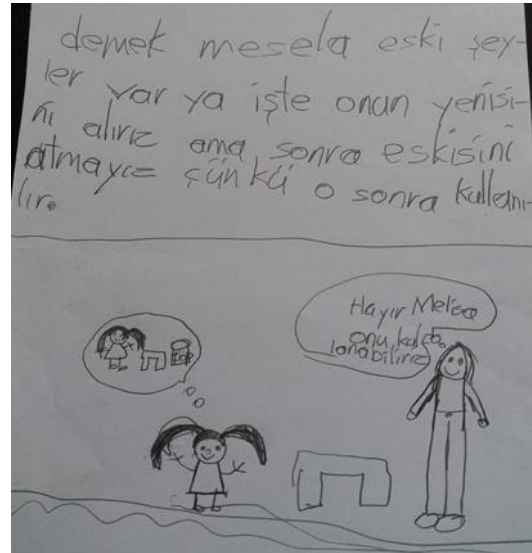 demek mesela eski şey-
ler var ya işte onun yenisi-
ni alırız ama sonra eskisini
atmayız çünkü o sonra kullanı-
lır.
Hayır Melisa
onu kulla
lanabiliriz